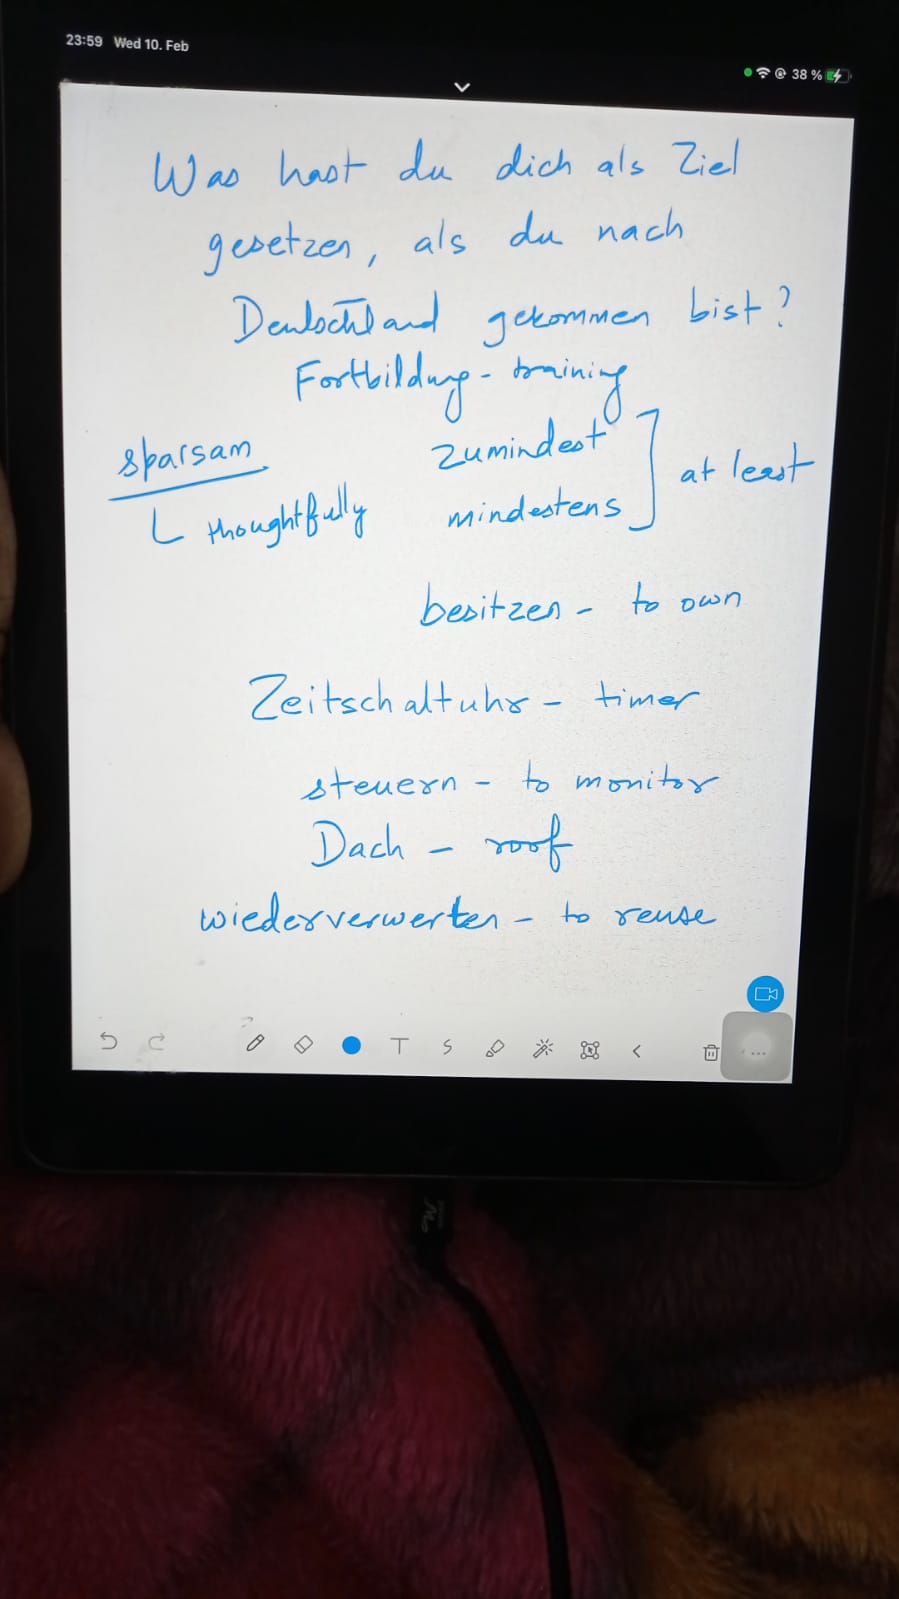 23:59 Wed 10. Feb
38 %
Was hast du dich als Ziel
gesetzen, als du nach
Deutschland gekommen bist?
Fortbildung - training
sparsam
thoughtfully
zumindest
mindestens
at least
besitzen - to own
Zeitschaltuhr - timer
steuern - to monitor
Dach - roof
wiederverwerten - to reuse
T S